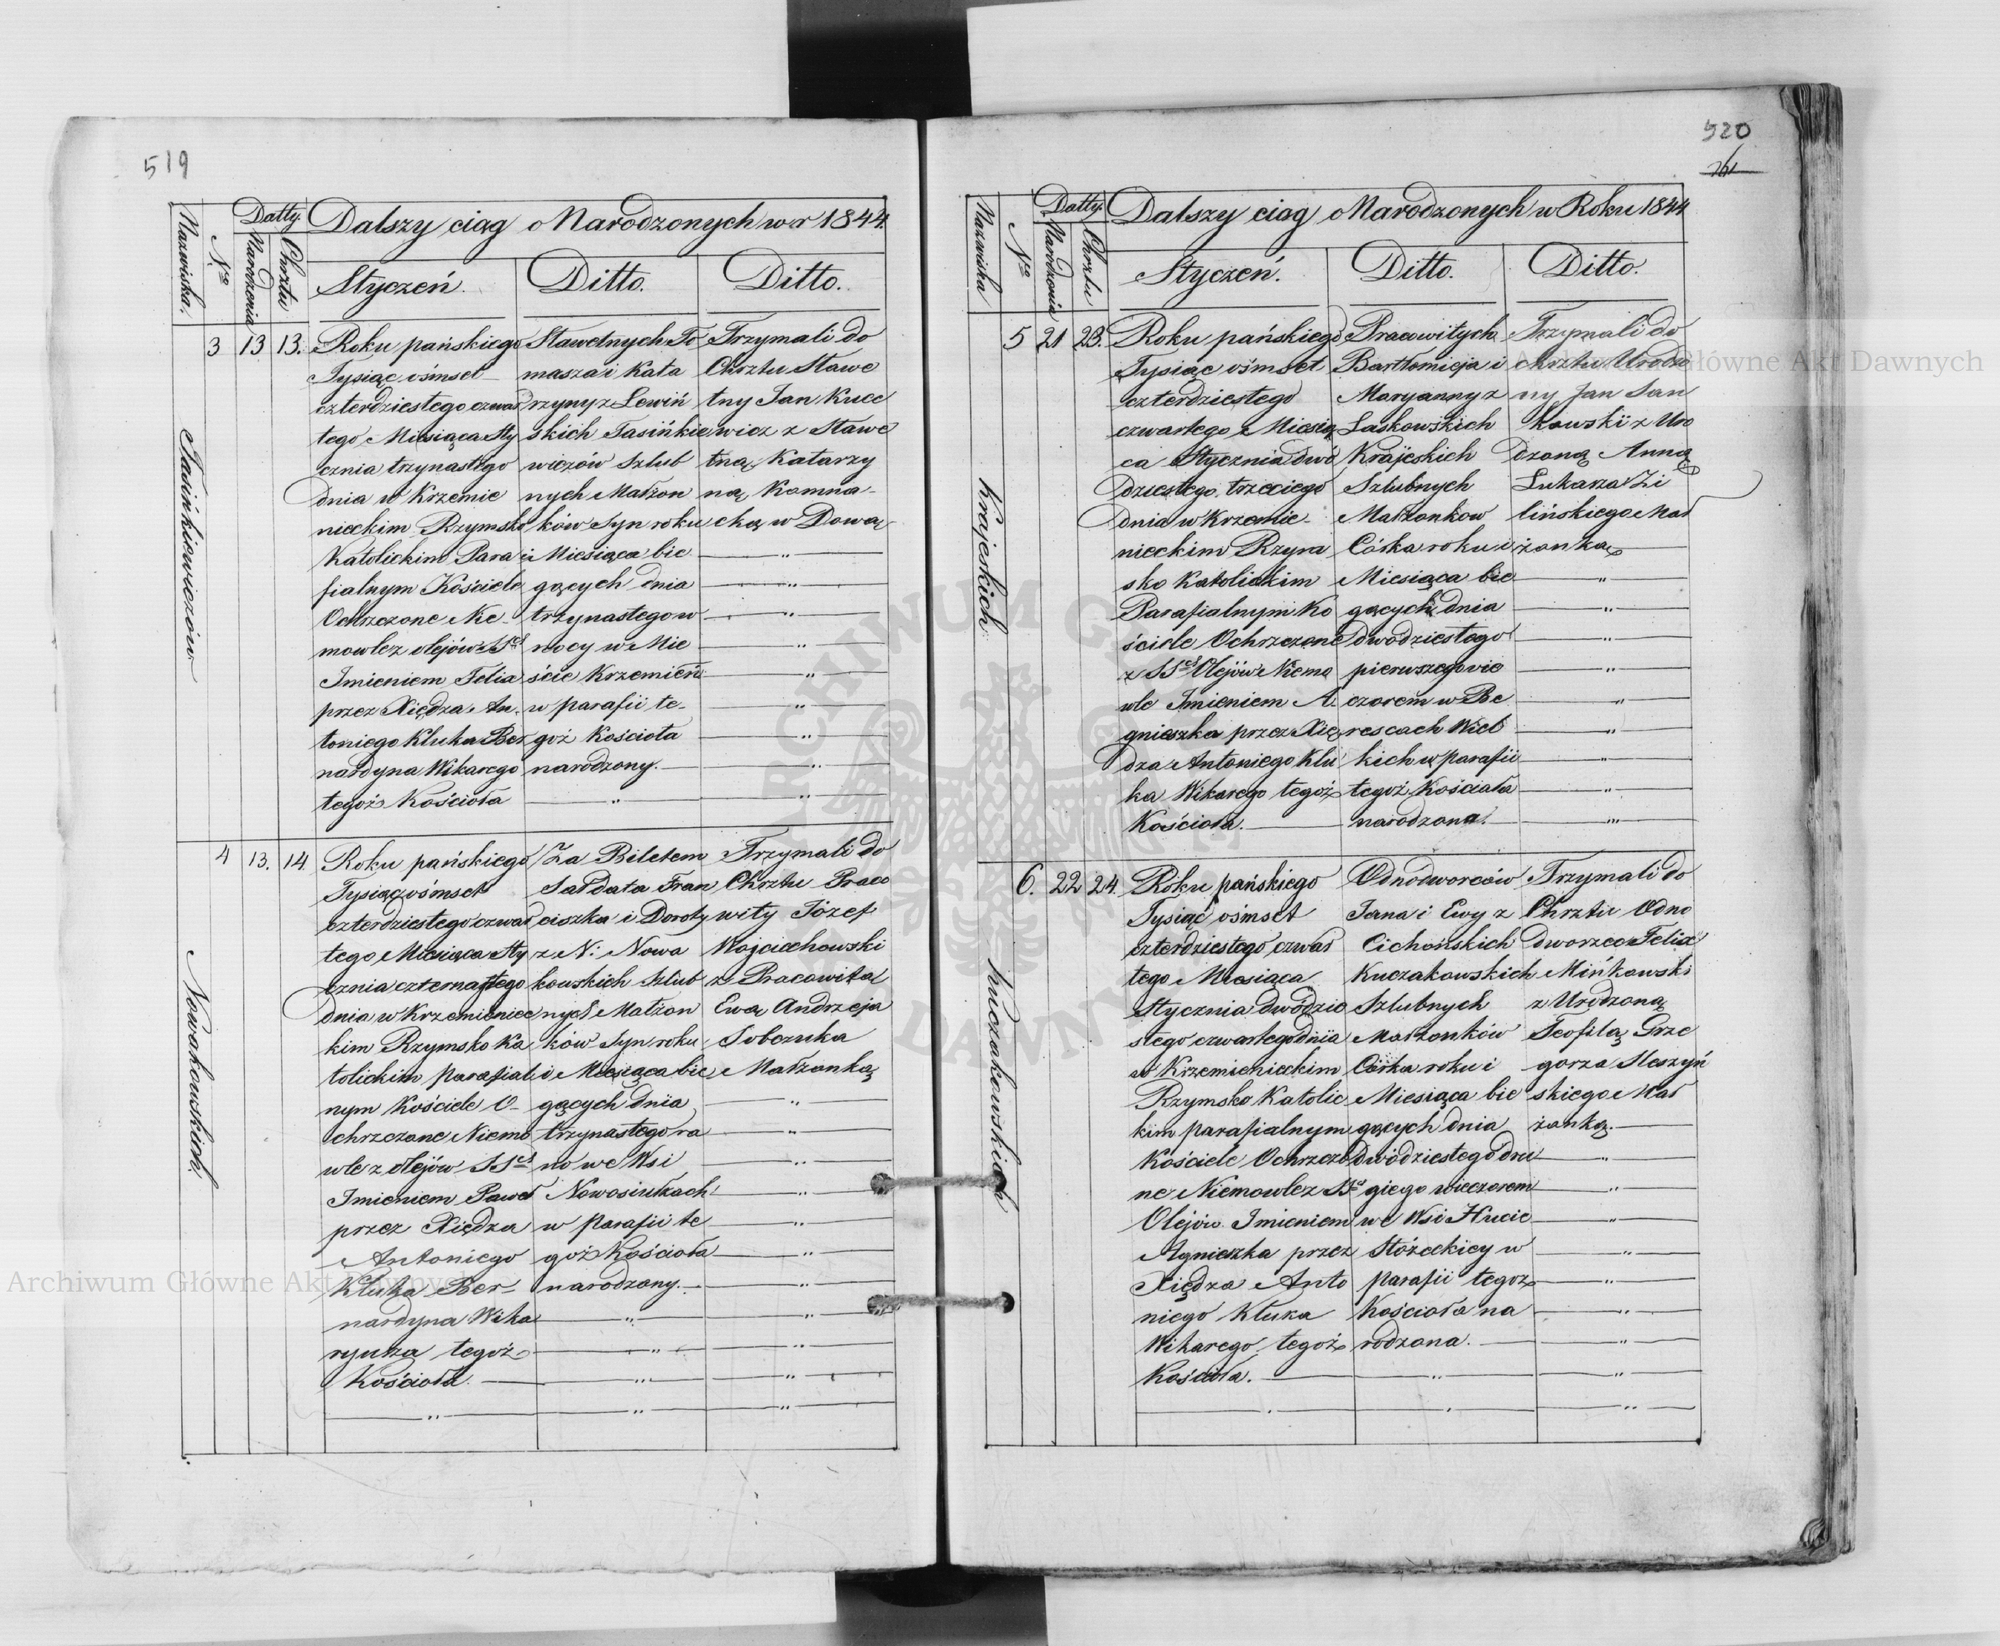 519
Nazwiska.
Nro
Datty.
Narodzenia
Chrztu
Dalszy ciąg o Narodzonych w r 1844.
Styczeń.
Ditto.
Ditto.
3
13
13.
Jasińkiewiczów
Roku pańskiego
Tysiąc ośmset
czterdziestego czwar
tego Miesiąca Sty
cznia trzynastego
dnia w Krzemie
nieckim Rzymsko
Katolickim Para
fialnym Kościele
Ochrzczone Nie-
mowlez olejów SSch
Imieniem Felix
przez Xiędza An.
toniego Kluka Ber
nardyna Wikarego
tegoż Kościoła
Sławetnych To
masza i Kata
rzyny z Lewiń
skich Jasińkie
wiczów Szlub
nych Małżon
ków Syn roku
i Miesiąca bie
gących dnia
trzynastego w
nocy w Mie
ście Krzemień
w parafii te-
goż Kościoła
narodzony.
Trzymali do
Chrztu Sławe
tny Jan Kuce
wicz z Sławe
tną Katarzy
ną Komna-
cką w Dową
4
13.
14.
Nowakowskich
Roku pańskiego
Tysiąc ośmset
czterdziestego czwar
tego Miesiąca Sty
cznia czternastego
dnia w Krzemieniec
kim Rzymsko Ka
tolickim parafial
nym Kościele O-
chrzczone Niemo
wle z olejów SSch
Imieniem Paweł
przez Xiędza
Antoniego
Kluka Ber-
nardyna Wika
ryusza tegoż
Kościoła.
Za Biletem
Sałdata Fran
ciszka i Doroty
z N: Nowa
kowskich Szlub
nych Małżon
ków Syn roku
i Miesiąca bie
gących dnia
trzynastego ra
no we Wsi
Nowosiułkach
w parafii te
goż Kościoła
narodzony.
Trzymali do
Chrztu Praco
wity Józef
Wojciechowski
z Pracowitą
Ewą Andrzeja
Sobczuka
Małżonką
520
Nazwiska
Nro
Datty.
Narodzenia
Chrztu
Dalszy ciąg o Narodzonych w Roku 1844
Styczeń.
Ditto.
Ditto.
5
21
23.
Krajeskich
Roku pańskiego
Tysiąc ośmset
czterdziestego
czwartego Miesią
ca Stycznia dwó
dziestego trzeciego
dnia w Krzemie-
nieckim Rzym
sko Katolickim
Parafialnym Ko
ściele Ochrzczone
z SSch Olejów Niemo
wle Imieniem A
gnieszka przez Xię
dza Antoniego Klu
ka Wikarego tegoż
Kościoła.
Pracowitych
Bartłomieja i
Maryanny z
Laskowskich
Krajeskich
Szlubnych
Małżonkow
Córka roku i
Miesiąca bie
gących dnia
dwódziestego
pierwszego wie
czorem w Be
rescach Wiel
kich w parafii
tegoż Kościoła
narodzona.
Trzymali do
chrztu Urodzo
ny Jan Jan
kowski z Uro
dzoną Anną
Łukarza Zi
lińskiego Mał
żonką
6.
22
24.
Kuczakowskich
Roku pańskiego
Tysiąc ośmset
czterdziestego czwar
tego Miesiąca
Stycznia dwódzie
stego czwartego dnia
w Krzemienieckim
Rzymsko Katolic
kim parafialnym
Kościele Ochrzczo
ne Niemowlez SSch
Olejów Imieniem
Agnieszka przez
Xiędza Anto
niego Kluka
Wikarego tegoż
Kościoła.
Odnodworców
Jana i Ewy z
Cichońskich
Kuczakowskich
Szlubnych
Małżonków
Córka roku i
Miesiąca bie
gących dnia
dwódziestego dru
giego wieczorem
we Wsi Hucie
Stożeckiey w
parafii tegoż
Kościoła na
rodzona.
Trzymali do
Chrztu Odno
dworzec Felix
Mińkowski
z Urodzoną
Teofilą Grze
gorza Sleszyń
skiego Mał
żonką.
Archiwum Główne Akt Dawnych
Główne Akt Dawnych